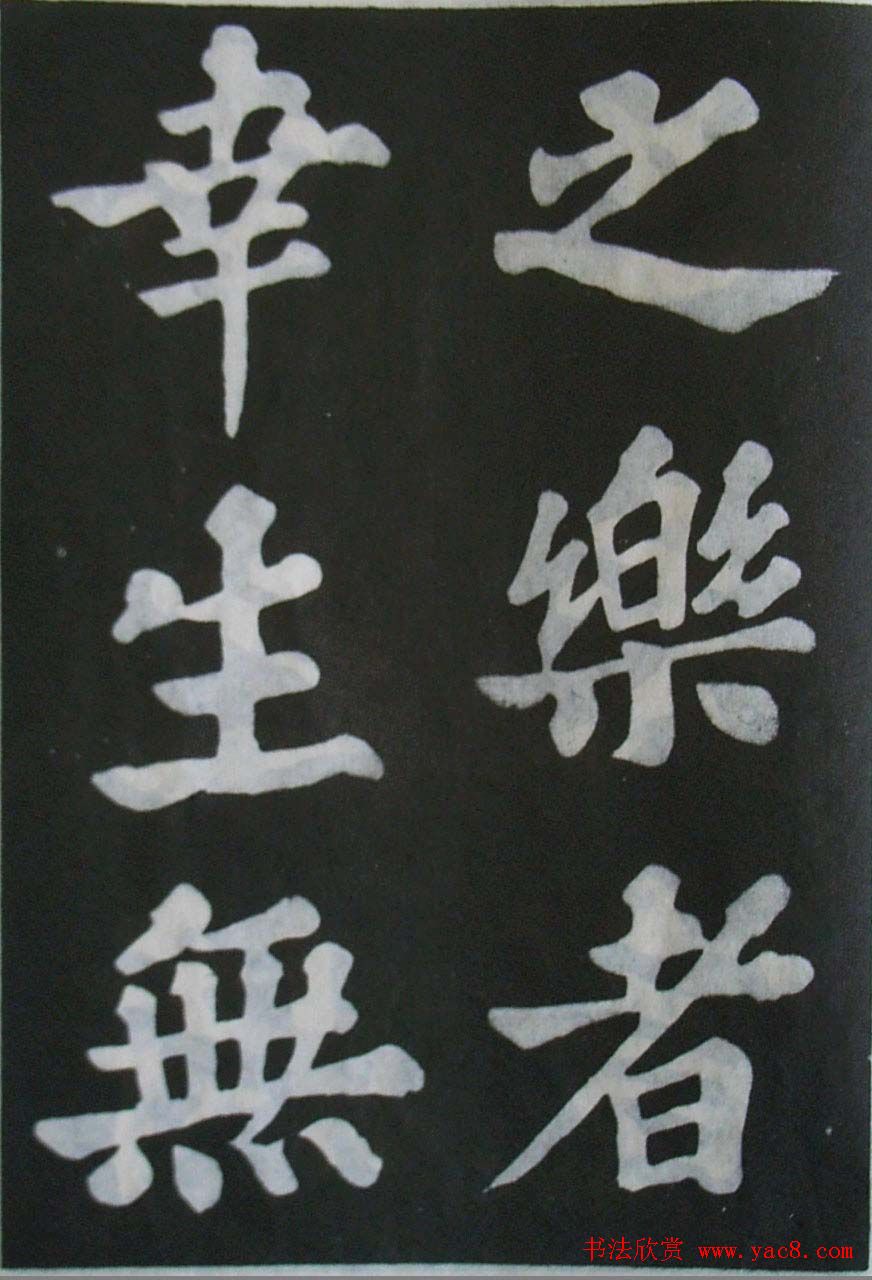 之樂者
幸生無
书法欣赏 www.yac8.com